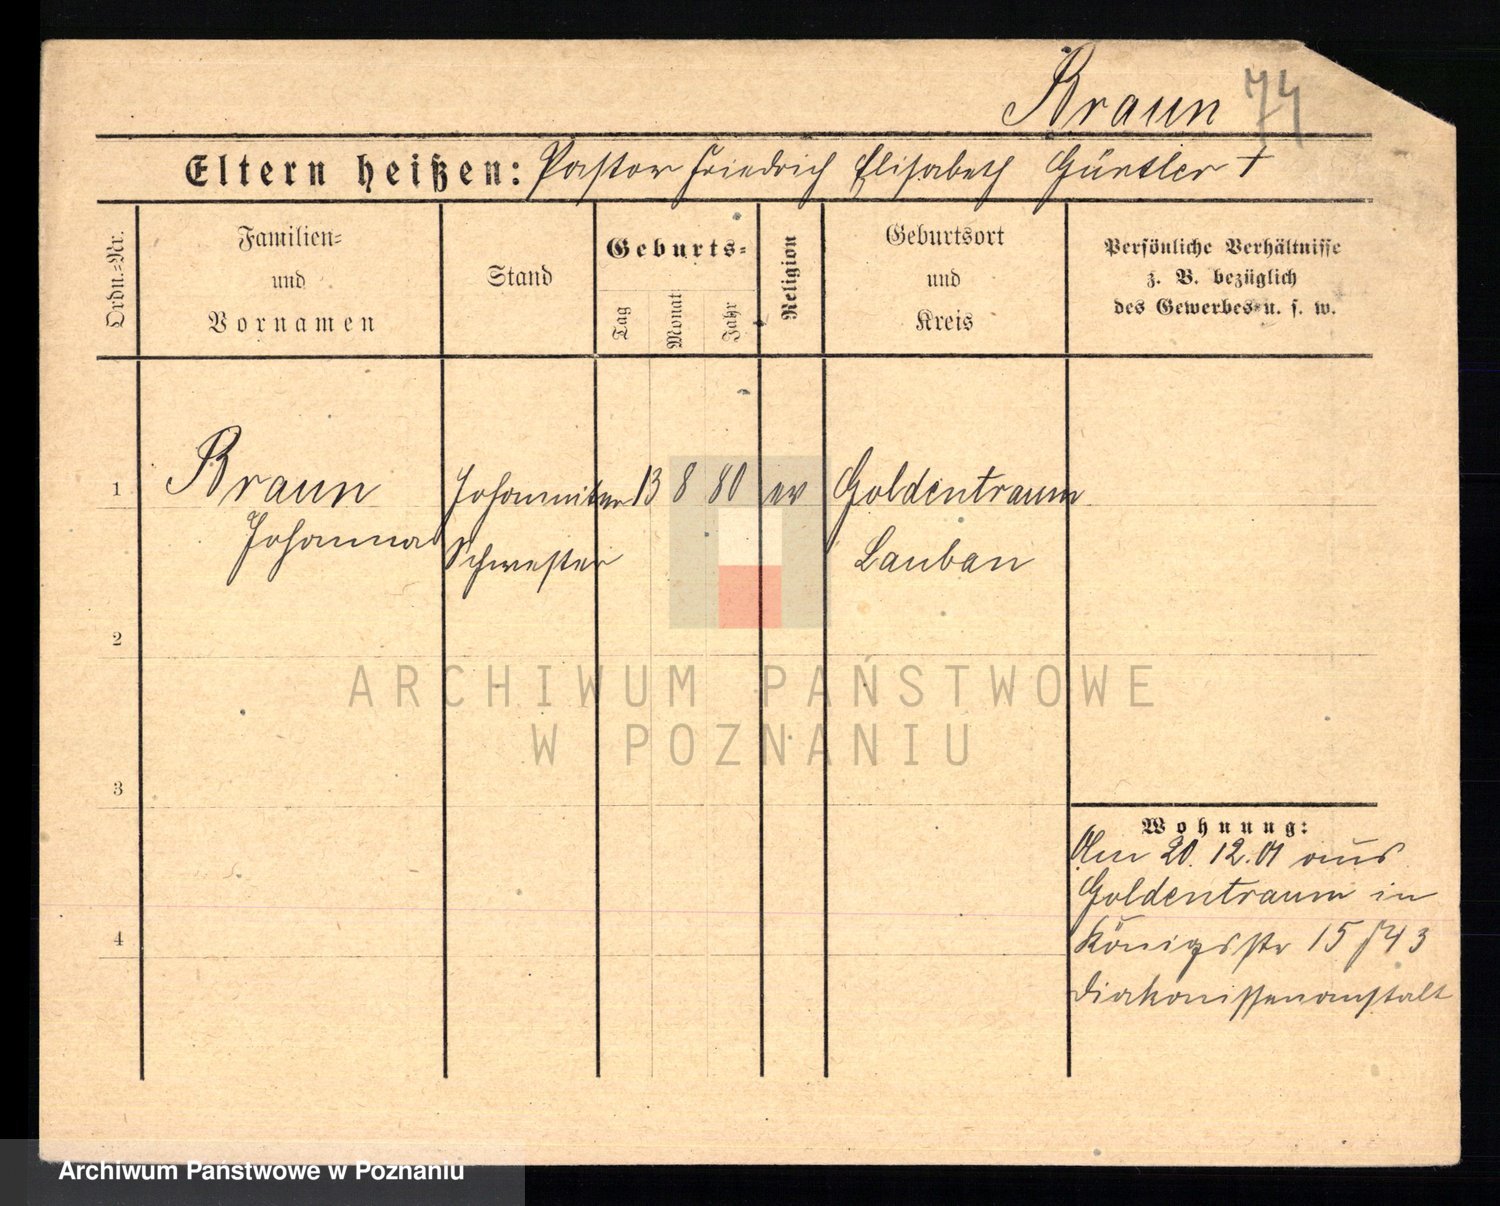 Braun 74
Eltern heißen: Pastor Friedrich Elisabeth Gürtler +
Ordn.-Nr.
Familien-
und
Vornamen
Stand
Geburts-
Tag
Monat
Jahr
Religion
Geburtsort
und
Kreis
Persönliche Verhältnisse
z. B. bezüglich
des Gewerbes u. s. w.
1 Braun Johanniter 13 8 80 ev Goldentraum
Johanna Schwester Lauban
2
ARCHIWUM PAŃSTWOWE
W POZNANIU
3
Wohnung:
Am 20.12.01 aus
Goldentraum in
4 Königsstr 15
Diakonissenanstalt
Archiwum Państwowe w Poznaniu